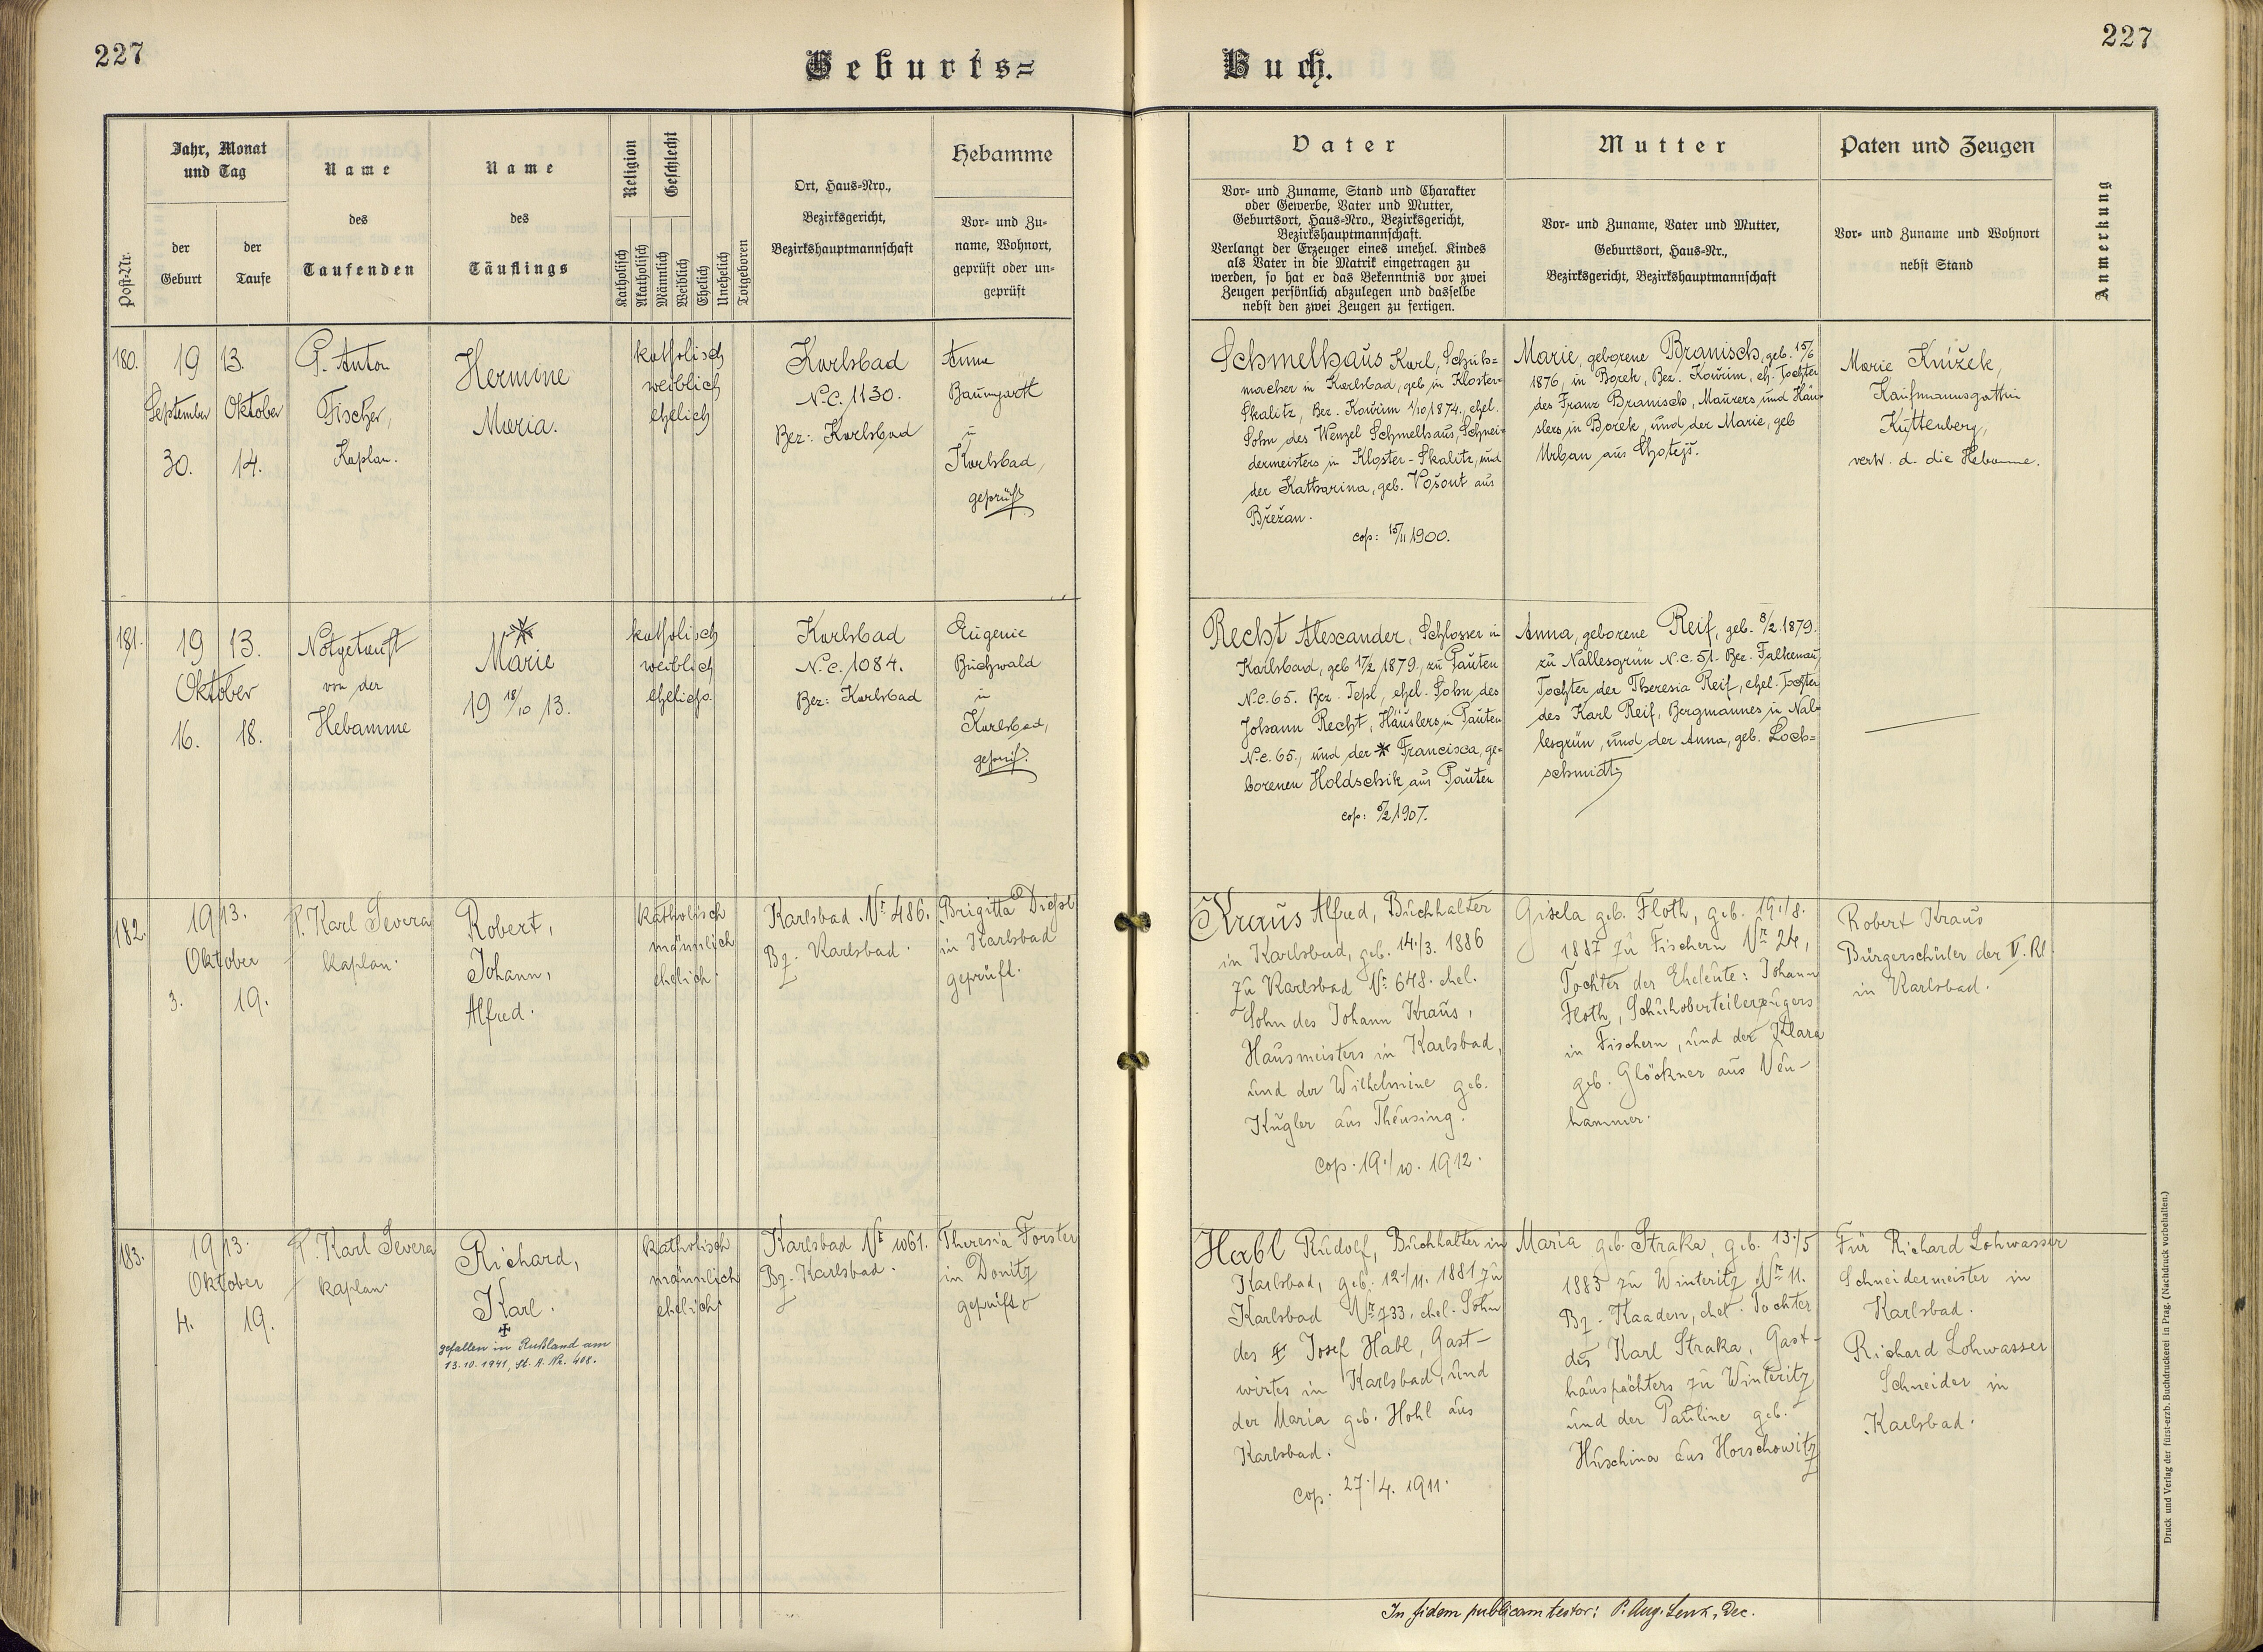 227
Geburts=
Buch.
227
Post-Nr.
Jahr, Monat
und Tag
der
Geburt
der
Taufe
Name
des
Taufenden
Name
des
Täuflings
Religion
Katholisch
Akatholisch
Geschlecht
Männlich
Weiblich
Ehelich
Unehelich
Totgeboren
Ort, Haus-Nro.,
Bezirksgericht,
Bezirkshauptmannschaft
Hebamme
Vor- und Zu-
name, Wohnort,
geprüft oder un-
geprüft
Vater
Vor- und Zuname, Stand und Charakter
oder Gewerbe, Vater und Mutter,
Geburtsort, Haus-Nro., Bezirksgericht,
Bezirkshauptmannschaft.
Verlangt der Erzeuger eines unehel. Kindes
als Vater in die Matrik eingetragen zu
werden, so hat er das Bekenntnis vor zwei
Zeugen persönlich abzulegen und dasselbe
nebst den zwei Zeugen zu fertigen.
Mutter
Vor- und Zuname, Vater und Mutter,
Geburtsort, Haus-Nr.,
Bezirksgericht, Bezirkshauptmannschaft
Paten und Zeugen
Vor- und Zuname und Wohnort
nebst Stand
Anmerkung
180.
19 13.
September Oktober
30. 14.
P. Anton
Fischer,
Kaplan.
Hermine
Maria.
katholisch
weiblich
ehelich
Karlsbad
N.C. 1130.
Bez: Karlsbad
Anna
Baumgartl
in
Karlsbad,
geprüft
Schmelhaus Karl, Schuh=
macher in Karlsbad, geb. in Kloster-
Skalitz, Bez. Kouřim 1/10 1874, ehel.
Sohn des Wenzel Schmelhaus, Schnei-
dermeisters in Kloster-Skalitz, und
der Katharina, geb. Vošout aus
Břežan.
cop: 15/11 1900.
Marie, geborene Branisch, geb. 15/6
1876, in Borek, Bez. Kouřim, eh. Tochter
des Franz Branisch, Maurers und Häu-
slers in Borek, und der Marie, geb
Urban aus Chotejš.
Marie Knížek,
Kaufmannsgattin
Kuttenberg,
vertr. d. die Hebamme.
181.
19 13.
Oktober
16. 18.
Notgetauft
von der
Hebamme
Marie
19 18/10 13.
katholisch
weiblich
ehelich.
Karlsbad
N.C. 1084.
Bez: Karlsbad
Eugenie
Buchwald
in
Karlsbad,
geprüf.
Recht Alexander, Schlosser in
Karlsbad, geb 17/2 1879, zu Pauten
N.C. 65. Bez. Tepl, ehel. Sohn des
Johann Recht, Häuslers in Pauten
N.C. 65., und der Francisca, ge-
borenen Holdschik aus Pauten
cop: 5/2 1907.
Anna, geborene Reif, geb. 8/2 1879.
zu Nallesgrün N.C. 51. Bez. Falkenau,
Tochter der Theresia Reif, ehel. Tochter
des Karl Reif, Bergmannes in Nal-
lesgrün, und der Anna, geb. Loch=
schmidt
182.
1913.
Oktober
3. 19.
P. Karl Severa
Kaplan.
Robert,
Johann,
Alfred.
katholisch
männlich
ehelich.
Karlsbad Nr 486.
Bz. Karlsbad.
Brigitta Dießl
in Karlsbad
geprüft.
Kraus Alfred, Buchhalter
in Karlsbad, geb. 14./3. 1886
zu Karlsbad Nr 648. ehel.
Sohn des Johann Kraus,
Hausmeisters in Karlsbad,
und der Wilhelmine geb.
Kugler aus Theusing.
Cop. 19./10. 1912.
Gisela geb. Floth, geb. 19./8.
1887 zu Fischern Nr 24,
Tochter der Eheleute: Johann
Floth, Schuhoberteilerzeugers
in Fischern, und der Klara
geb. Glöckner aus Neu-
hammer.
Robert Kraus
Bürgerschüler der II. Kl.
in Karlsbad.
183.
1913.
Oktober
4. 19.
P. Karl Severa
Kaplan.
Richard,
Karl.
gefallen in Rußland am
13.10.1941, St. A. Nr. 408.
katholisch
männlich
ehelich.
Karlsbad Nr 1061.
Bz. Karlsbad.
Theresia Forster
in Donitz
geprüft
Habl Rudolf, Buchhalter in
Karlsbad, geb. 12./11. 1881 zu
Karlsbad Nr 733, ehel. Sohn
des Josef Habl, Gast-
wirtes in Karlsbad, und
der Maria geb. Hohl aus
Karlsbad.
Cop. 27./4. 1911.
Maria geb. Straka, geb. 13./5
1883 zu Winteritz Nr 11.
Bz. Kaaden, ehel. Tochter
des Karl Straka, Gast-
hauspächters zu Winteritz
und der Pauline geb.
Huschina aus Horschowitz
Für Richard Lohwasser
Schneidermeister in
Karlsbad.
Richard Lohwasser
Schneider in
Karlsbad.
In fidem publicam testor: P. Aug. Lenk, Dec.
Druck und Verlag der fürst-erzb. Buchdruckerei in Prag. (Nachdruck vorbehalten.)